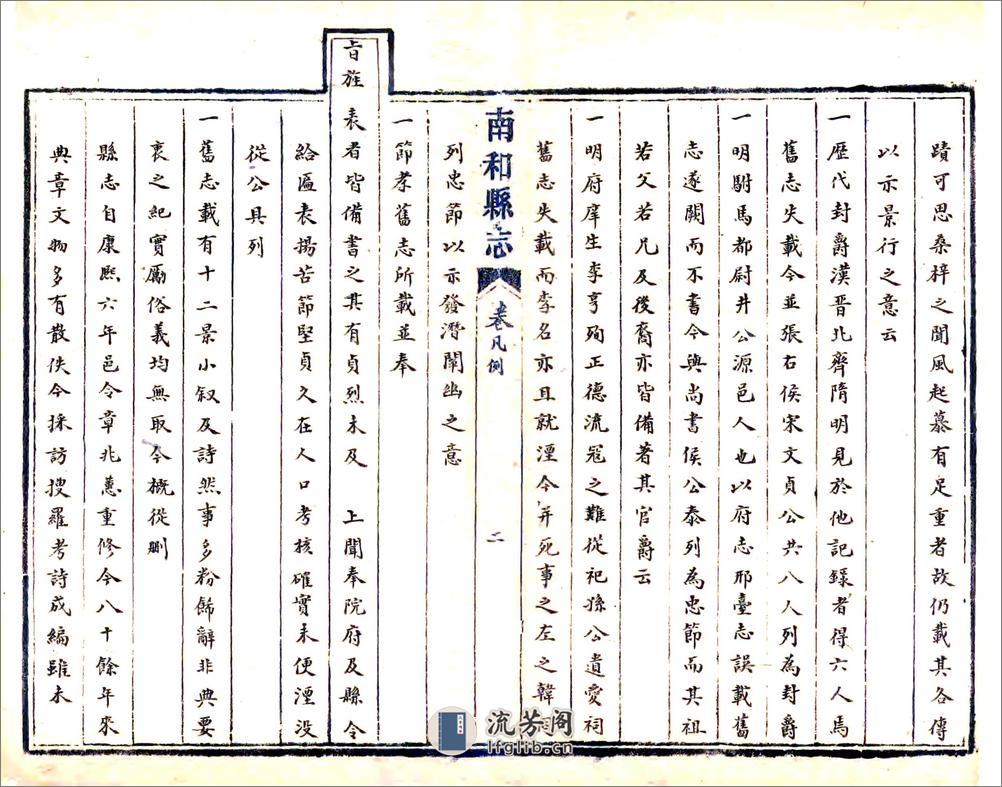 蹟可思桑梓之聞風起慕有足重者故仍載其各傳
以示景行之意云
一歷代封爵漢晉北齊隋明見於他記錄者得六人焉
舊志失載今並張右侯宋文貞公共八人列為封爵
一明駙馬都尉井公源邑人也以府志邢臺志誤載舊
志遂闕而不書今與尚書侯公泰列為忠節而其祖
若父若兄及後裔亦皆備著其官爵云
一明府庠生李亨殉正德流寇之難從祀孫公遺愛祠
舊志失載而李名亦且就湮今并死事之左之韓
南和縣志
卷凡例
二
列忠節以示發潛闡幽之意
一節孝舊志所載並奉
旨旌表者皆備書之其有貞烈未及 上聞奉院府及縣令
給匾表揚苦節堅貞久在人口考核確實未便湮没
從公具列
一舊志載有十二景小叙及詩然事多粉餙辭非典要
衷之紀實厲俗義均無取今概從刪
縣志自康熙六年邑令章兆蕙重修今八十餘年來
典章文物多有散佚今採訪搜羅考詩成編雖未
流芳阁
lfglib.cn